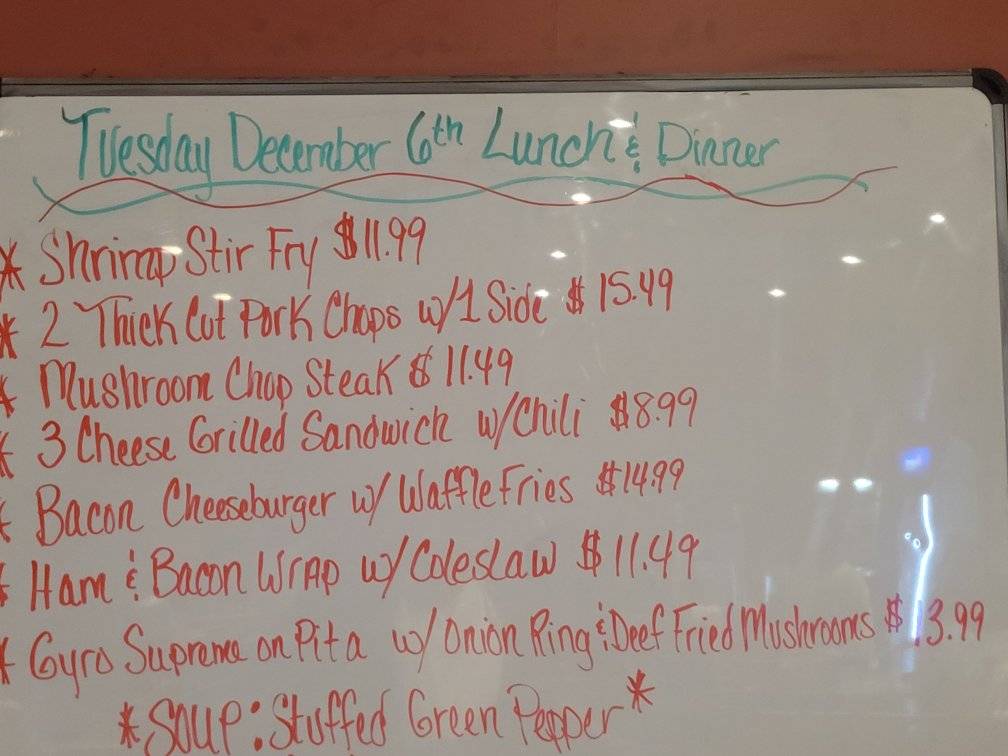 Tuesday December 6th Lunch & Dinner
* Shrimp Stir Fry $11.99
* 2 Thick Cut Pork Chops w/1 Side $15.49
* Mushroom Chop Steak $11.49
* 3 Cheese Grilled Sandwich w/Chili $8.99
* Bacon Cheeseburger w/ Waffle Fries $14.99
* Ham & Bacon Wrap w/ Coleslaw $11.49
* Gyro Supreme on Pita w/ Onion Ring & Deef Fried Mushrooms $13.99
*Soup: Stuffed Green Pepper*